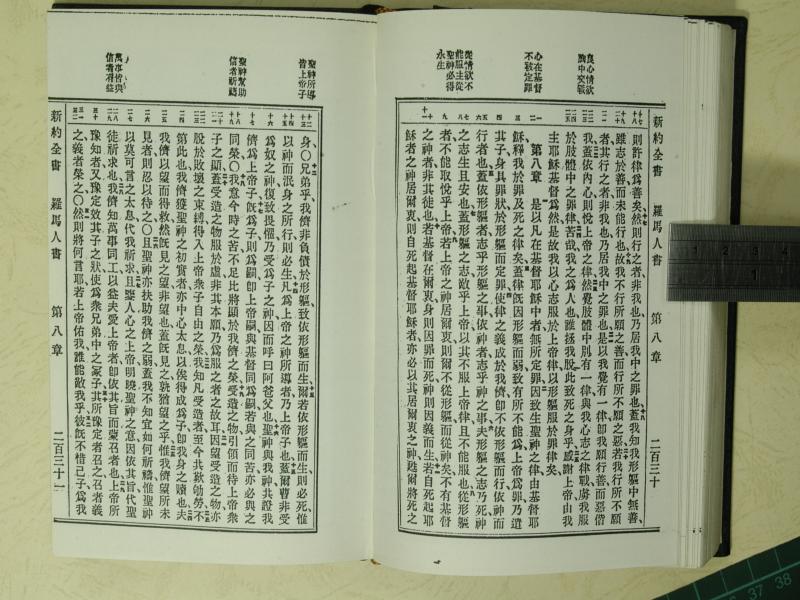 新約全書　羅馬人書　第八章　二百三十
良心情欲
胸中交戰
心在基督
不致定罪
從情欲不
能服主從
聖神必得
永生
則許律爲善矣然則行之者非我也乃居我中之罪也蓋我知我形軀中無善、
雖志於善而未能行也故我不行所願之善而行所不願之惡若我行所不願
者其行之者非我也乃居我中之罪也是以我覺有一律卽我願行善而惡偕
我蓋依內心則悅上帝之律然覺肢體中別有一律與我心志之律戰虜我服
於肢體中之罪律苦哉我之爲人也誰拯我脫此致死之身乎感謝上帝由我
主耶穌基督爲然是故我以心志服於上帝律以形軀服於罪律矣
第八章　是以凡在基督耶穌中者無所定罪因致生聖神之律由基督耶
穌釋我於罪及死之律矣蓋律旣因形軀而弱致有所不能爲上帝爲罪乃遣
其子身具罪狀於形軀而定罪使律之義成於我儕卽不依形軀而行依神而
行者也蓋依形軀者志乎形軀之事依神者志乎神之事夫形軀之志乃死神
之志生且安也蓋形軀之志敵乎上帝以其不服上帝律且不能服也從形軀
者不能取悅乎上帝若上帝之神居爾衷則爾不從形軀而從神矣不有基督
之神者非其徒也若基督在爾衷身則因罪而死神則因義而生若自死起耶
穌者之神居爾衷則自死起基督耶穌者亦必以其居爾衷之神甦爾將死之
聖神所導
皆上帝子
聖神幫助
信者祈禱
萬事皆與
信者有益
身〇兄弟乎我儕非負債於形軀致依形軀而生爾若依形軀而生則必死惟
以神而泯身之所行則必生凡爲上帝之神所導者乃上帝子也蓋爾曹非受
爲奴之神復致畏懼乃受爲子之神因而呼曰阿爸父也聖神與我神共證我
儕爲上帝子旣爲子則爲嗣卽上帝嗣與基督同爲嗣若與之同苦亦必與之
同榮〇我意今時之苦不足比將顯於我儕之榮受造之物引領而待上帝衆
子之顯蓋受造之物服於虛非其本願乃爲服之者之故耳因望受造之物亦
脫於敗壞之束縛得入上帝衆子自由之榮我知凡受造者至今共歎劬勞不
第此也我儕獲聖神之初實者亦中心太息以俟得成爲子卽我身之贖也夫
我儕以望而得救然旣見之望非望也蓋旣見之孰猶望之乎惟我儕望所未
見者則忍以待之〇且聖神亦扶助我儕之弱蓋我不知宜如何祈禱惟聖神
以莫可言之太息代我祈求且鑒人心之上帝明曉聖神之意因依其旨代聖
徒祈求也我儕知萬事同工以益夫愛上帝者卽依其旨而蒙召者也上帝所
豫知者又豫定效其子之狀使爲衆兄弟中之冢子其所豫定者召之召者義
之義者榮之〇然則將何言耶若上帝佑我誰能敵我乎彼旣不惜己子爲我
新約全書　羅馬人書　第八章　二百三十一